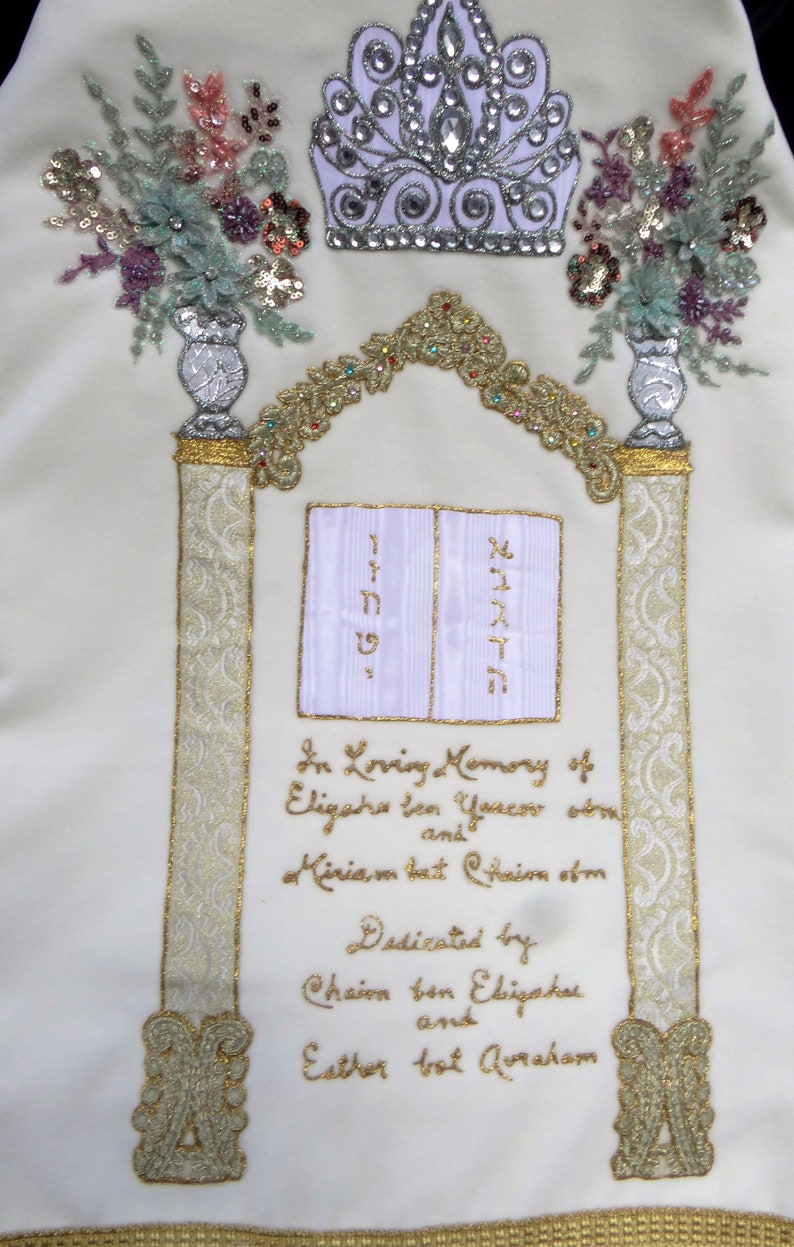 א
ב
ג
ד
ה
ו
ז
ח
ט
י
In Loving Memory of
Eliyahu ben Yaacov obm
and
Miriam bat Chaim obm
Dedicated by
Chaim ben Eliyahu
and
Esther bat Avraham